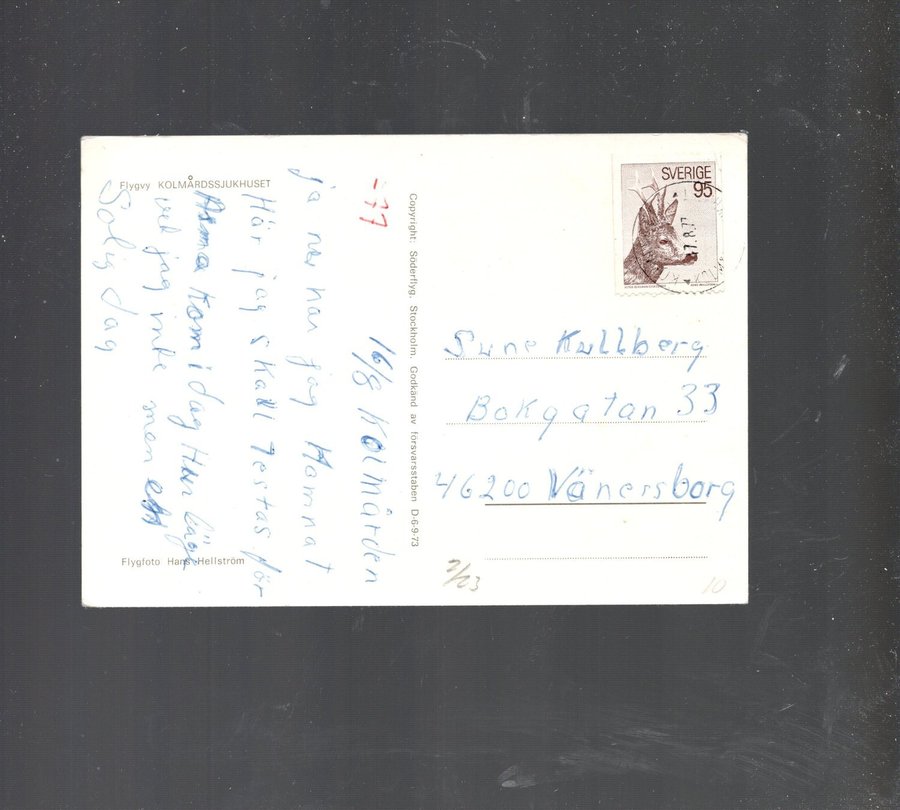 Flygvy KOLMÅRDSSJUKHUSET
-77
16/8 Kolmården
ja ner har jag Hamnat
Här jag skall Testas för
Astma Kom i dag Hur länge
vet jag inte men en
Solig dag
Flygfoto Hans Hellström
Copyright: Söderflyg, Stockholm. Godkänd av försvarsstaben D-6-9-73
SVERIGE
95
7.8.77
Sune Kullberg
Bokgatan 33
46200 Vänersborg
10